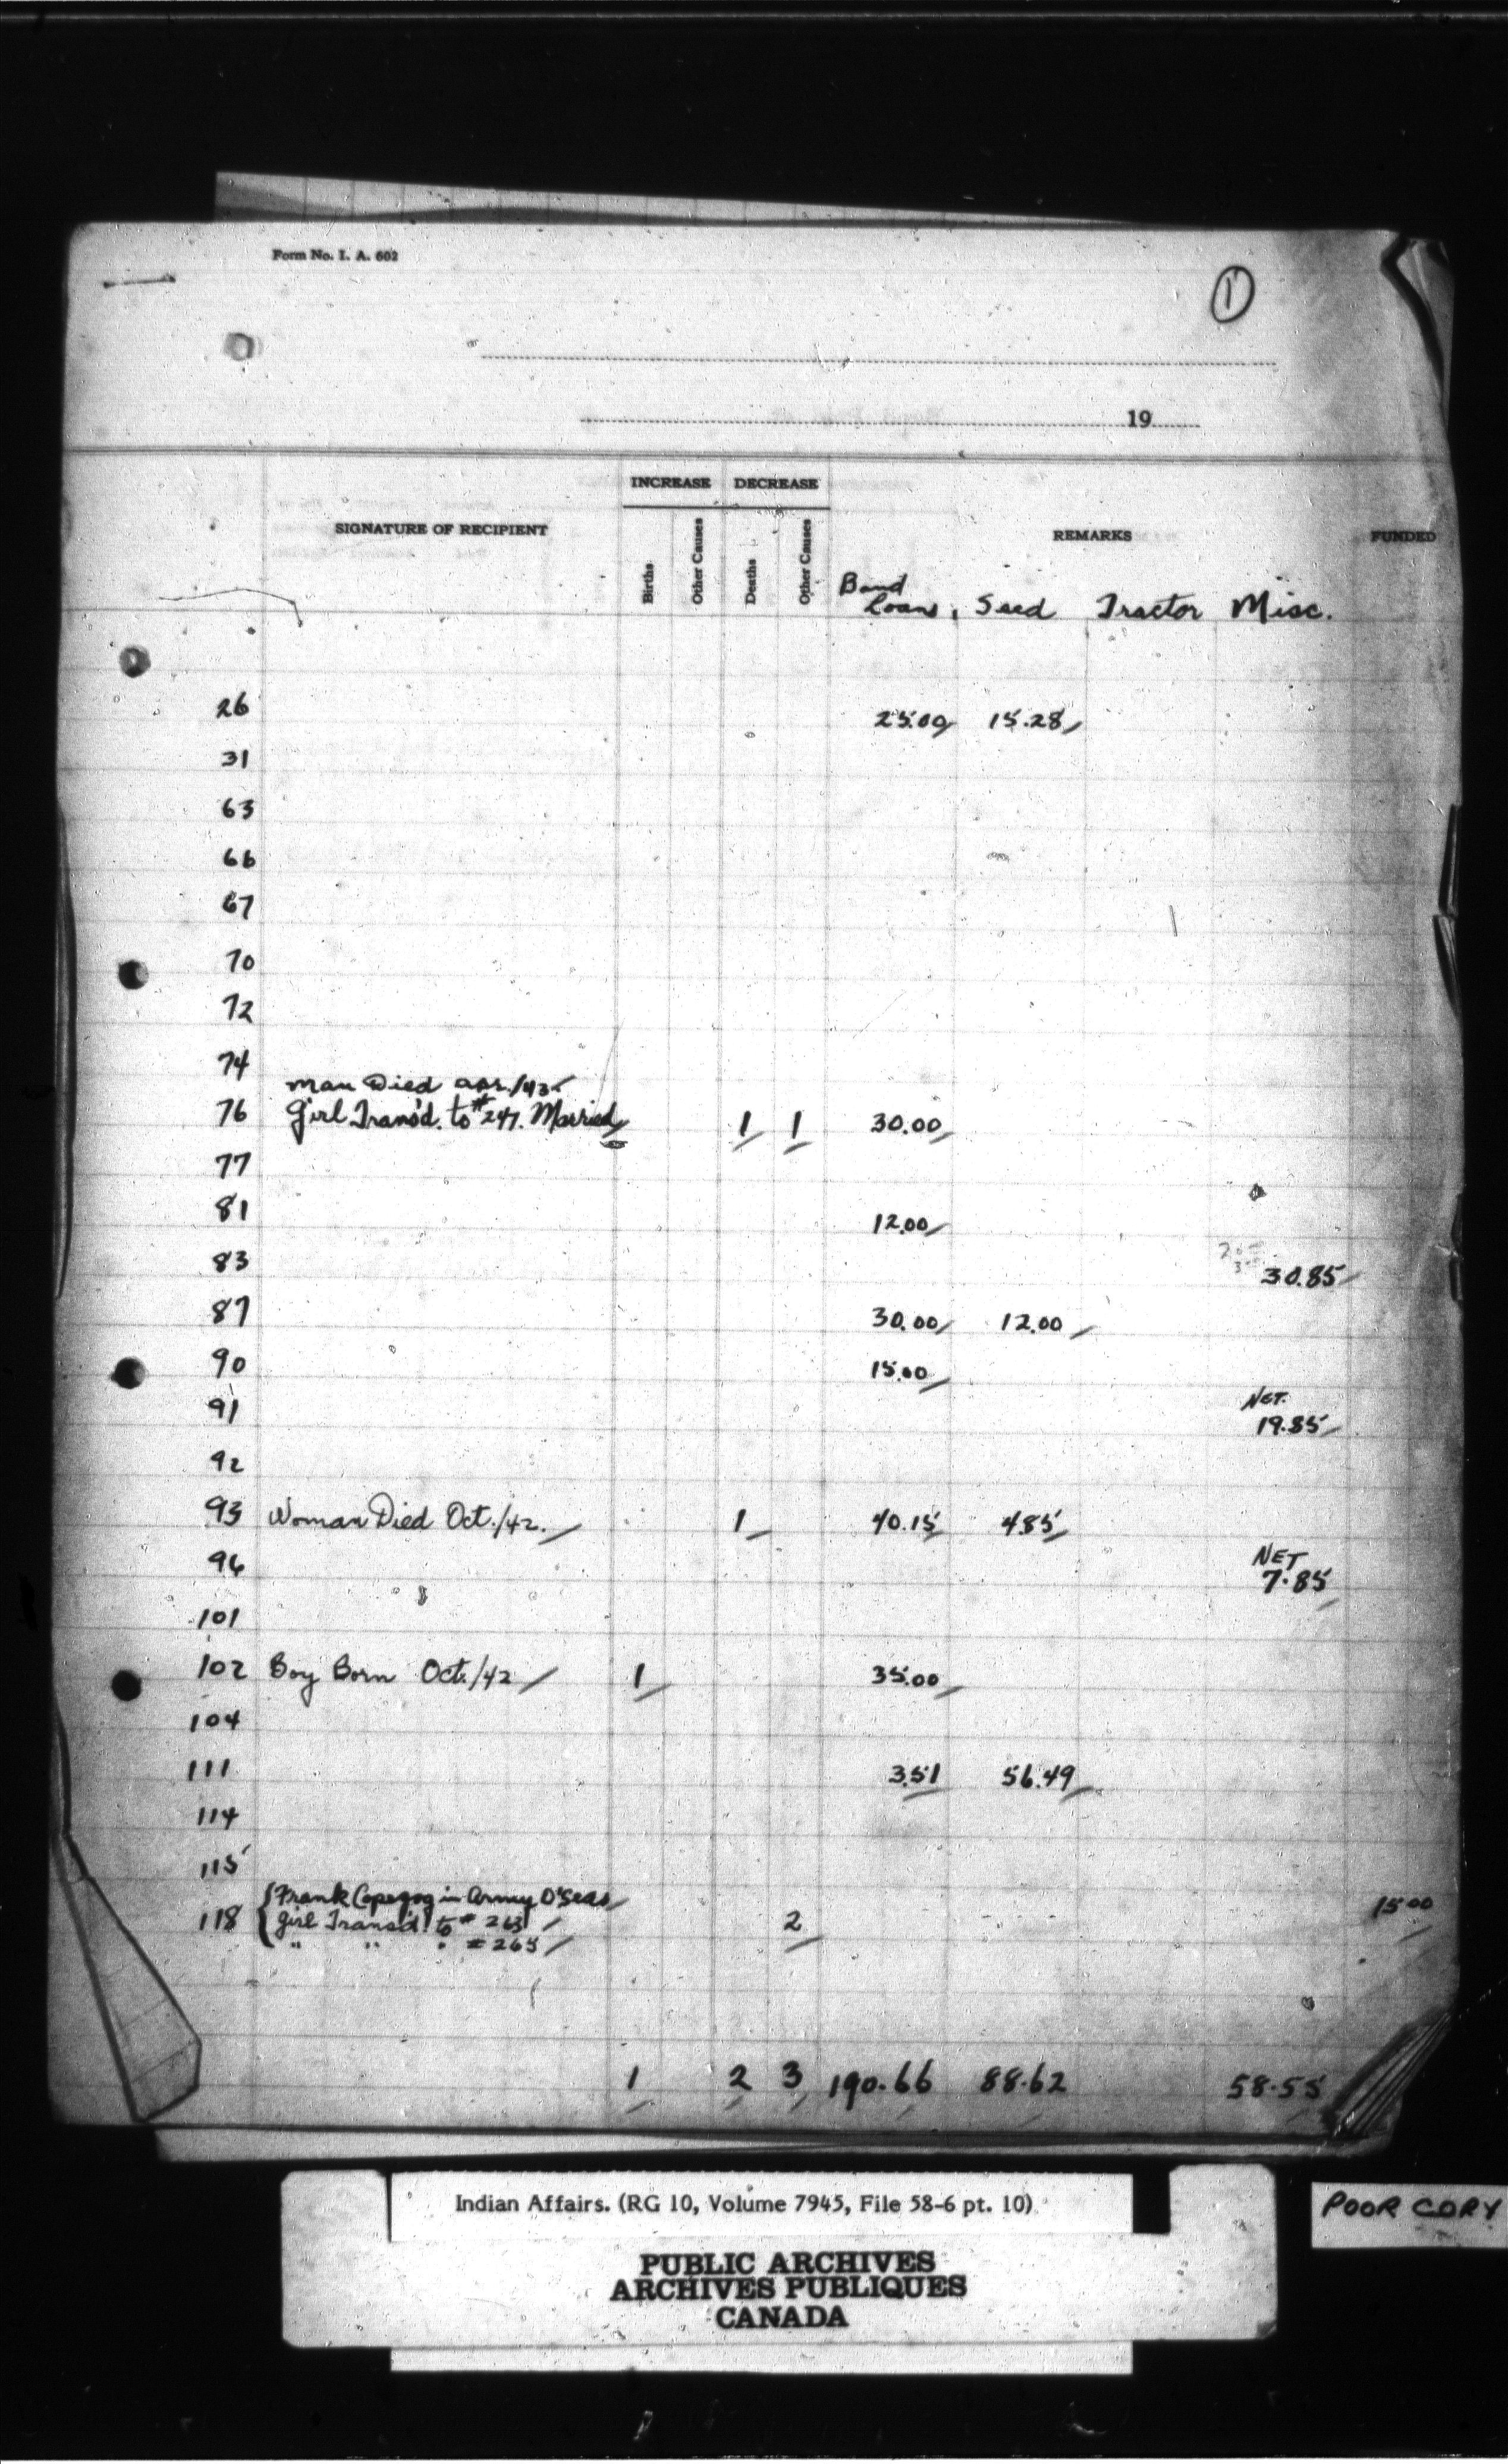 Form No. I. A. 602
1
19
INCREASE DECREASE
SIGNATURE OF RECIPIENT Births Other Causes Deaths Other Causes REMARKS FUNDED
Band Loans, Seed Tractor Misc.
26 25.00 15.28
31
63
66
67
70
72
74
Man Died Apr./43
76 Girl Trans'd. to #247. Married 1 1 30.00
77
81 12.00
83 30.85
87 30.00 12.00
90 15.00
NET.
91 19.85
92
93 Woman Died Oct./42. 1 40.15 4.85
NET
96 7.85
101
102 Boy Born Oct./42 1 35.00
104
111 3.51 56.49
114
115
Frank Copegog in Army O'Seas
118 Girl Transd. to # 263 2 15.00
" " " # 265
1 2 3 190.66 88.62 58.55
Indian Affairs. (RG 10, Volume 7945, File 58-6 pt. 10)
POOR COPY
PUBLIC ARCHIVES
ARCHIVES PUBLIQUES
CANADA